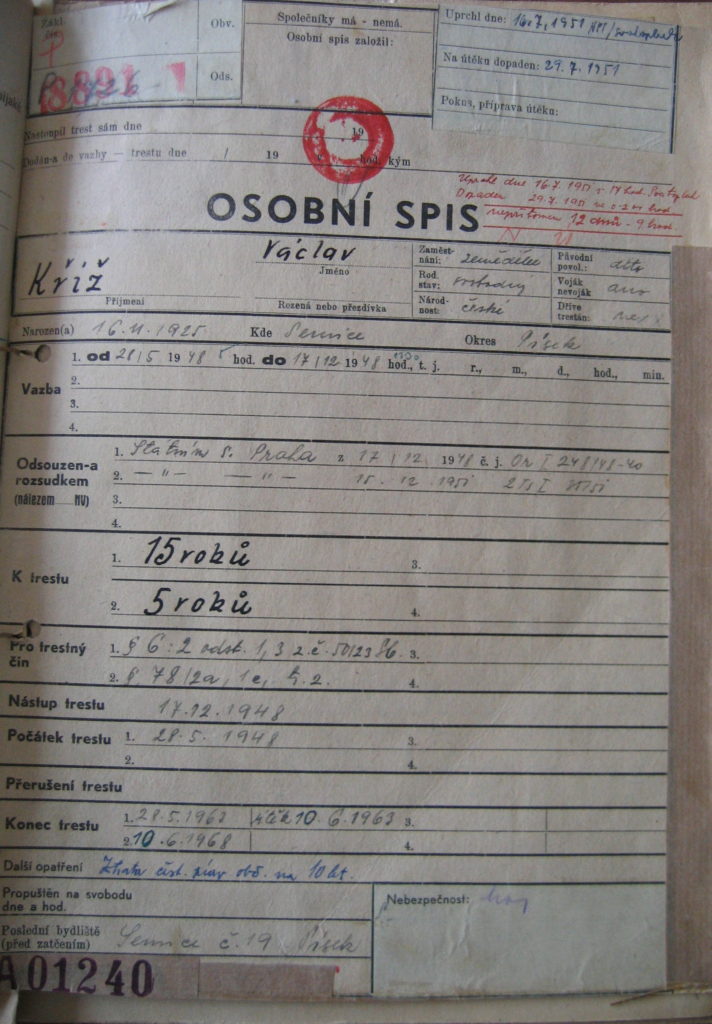 Zákl. Obv.
Ods.
8891
Společníky má - nemá.
Osobní spis založil:
Uprchl dne: 16.7.1951
Na útěku dopaden: 29.7.1951
Pokus, příprava útěku:
Nastoupil trest sám dne 19
Dodán-a do vazby — trestu dne / 19 hod. kým
Uprchl dne 16.7.1951 v 17 hod.
Dopaden 29.7.1951 hod
nepřítomen 12 dnů - 9 hod
OSOBNÍ SPIS
Kříž
Příjmení
Václav
Jméno
Rozená nebo přezdívka
Zaměstnání: zemědělec
Rod. stav: svobodný
Národnost: české
Původní povol.: dtto
Voják nevoják ano
Dříve trestán:
Narozen(a) 16.11.1925 Kde Semice Okres Písek
Vazba
1. od 28/5 1948 hod. do 17/12 1948 hod., t. j. r., m., d., hod., min.
2.
3.
4.
Odsouzen-a rozsudkem (nálezem NV)
1. Státním s. Praha z 17/12 1948 č. j. Or I 248/48-40
2. — " — — " — 15. 12. 1951
3.
4.
K trestu
1. 15 roků 3.
2. 5 roků 4.
Pro trestný čin
1. § 6:2 odst. 1, 3.
2. § 78/2a, 4.
Nástup trestu 17.12.1948
Počátek trestu 1. 28.5.1948 3.
2. 4.
Přerušení trestu
Konec trestu 1. 28.5.1963 10.6.1963 3.
2. 10.6.1968 4.
Další opatření Ztráta čest. práv obč. na 10 let.
Propuštěn na svobodu dne a hod.
Nebezpečnost:
Poslední bydliště (před zatčením) Semice č. 19 Písek
A01240